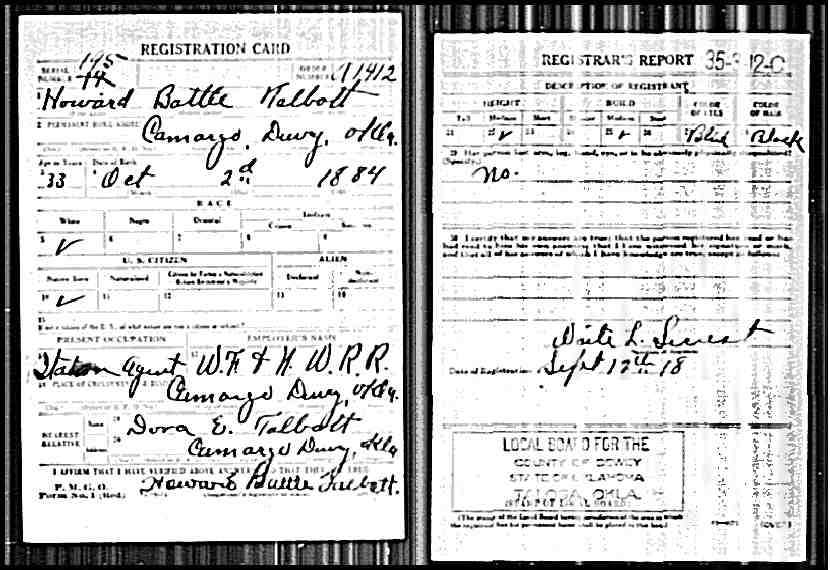 REGISTRATION CARD
SERIAL NUMBER 195
ORDER NUMBER 11412
1 Howard Battle Talbott
2 PERMANENT HOME ADDRESS
Camargo, Dewy, Okla.
Age in Years Date of Birth
33 Oct 2nd 1884
RACE
White Negro Oriental Indian
Citizen
5 ✓ 6 7 8 9
U. S. CITIZEN ALIEN
Native Born Naturalized Citizen by Father's Naturalization Before Registrant's Majority Declarant Non-declarant
10 ✓ 11 12 13
15
If not a citizen of the U. S., of what nation are you a citizen or subject?
PRESENT OCCUPATION EMPLOYER'S NAME
Station Agent W. F. & N. W. R. R.
Camargo Dewy, Okla.
NEAREST RELATIVE Name 19 Dora E. Talbott
Address 20 Camargo Dewy, Okla
I AFFIRM THAT I HAVE VERIFIED ABOVE ANSWERS AND THAT THEY ARE TRUE
P. M. G. O.
Form No. 1 (Red) Howard Battle Talbott.
REGISTRAR'S REPORT 35- 12-C
DESCRIPTION OF REGISTRANT
HEIGHT BUILD COLOR OF EYES COLOR OF HAIR
Tall Medium Short Slender Medium Stout
21 22 ✓ 23 25 ✓ 26 Black
29 Has person lost arm, leg, hand, eye, or is he obviously physically disqualified?
(Specify.)
no.
30 I certify that my answers are true; that the person registered has read or has
had read to him his own answers; that I have witnessed his signature or mark,
and that all of his answers of which I have knowledge are true, except as follows:
Date of Registration Sept 12th 18
LOCAL BOARD FOR THE
COUNTY OF DEWEY
STATE OF OKLAHOMA
TALOGA, OKLA.
(STAMP OF LOCAL BOARD)
(The stamp of the Local Board having jurisdiction of the area in which
the registrant has his permanent home shall be placed in this box.)
(OVER)